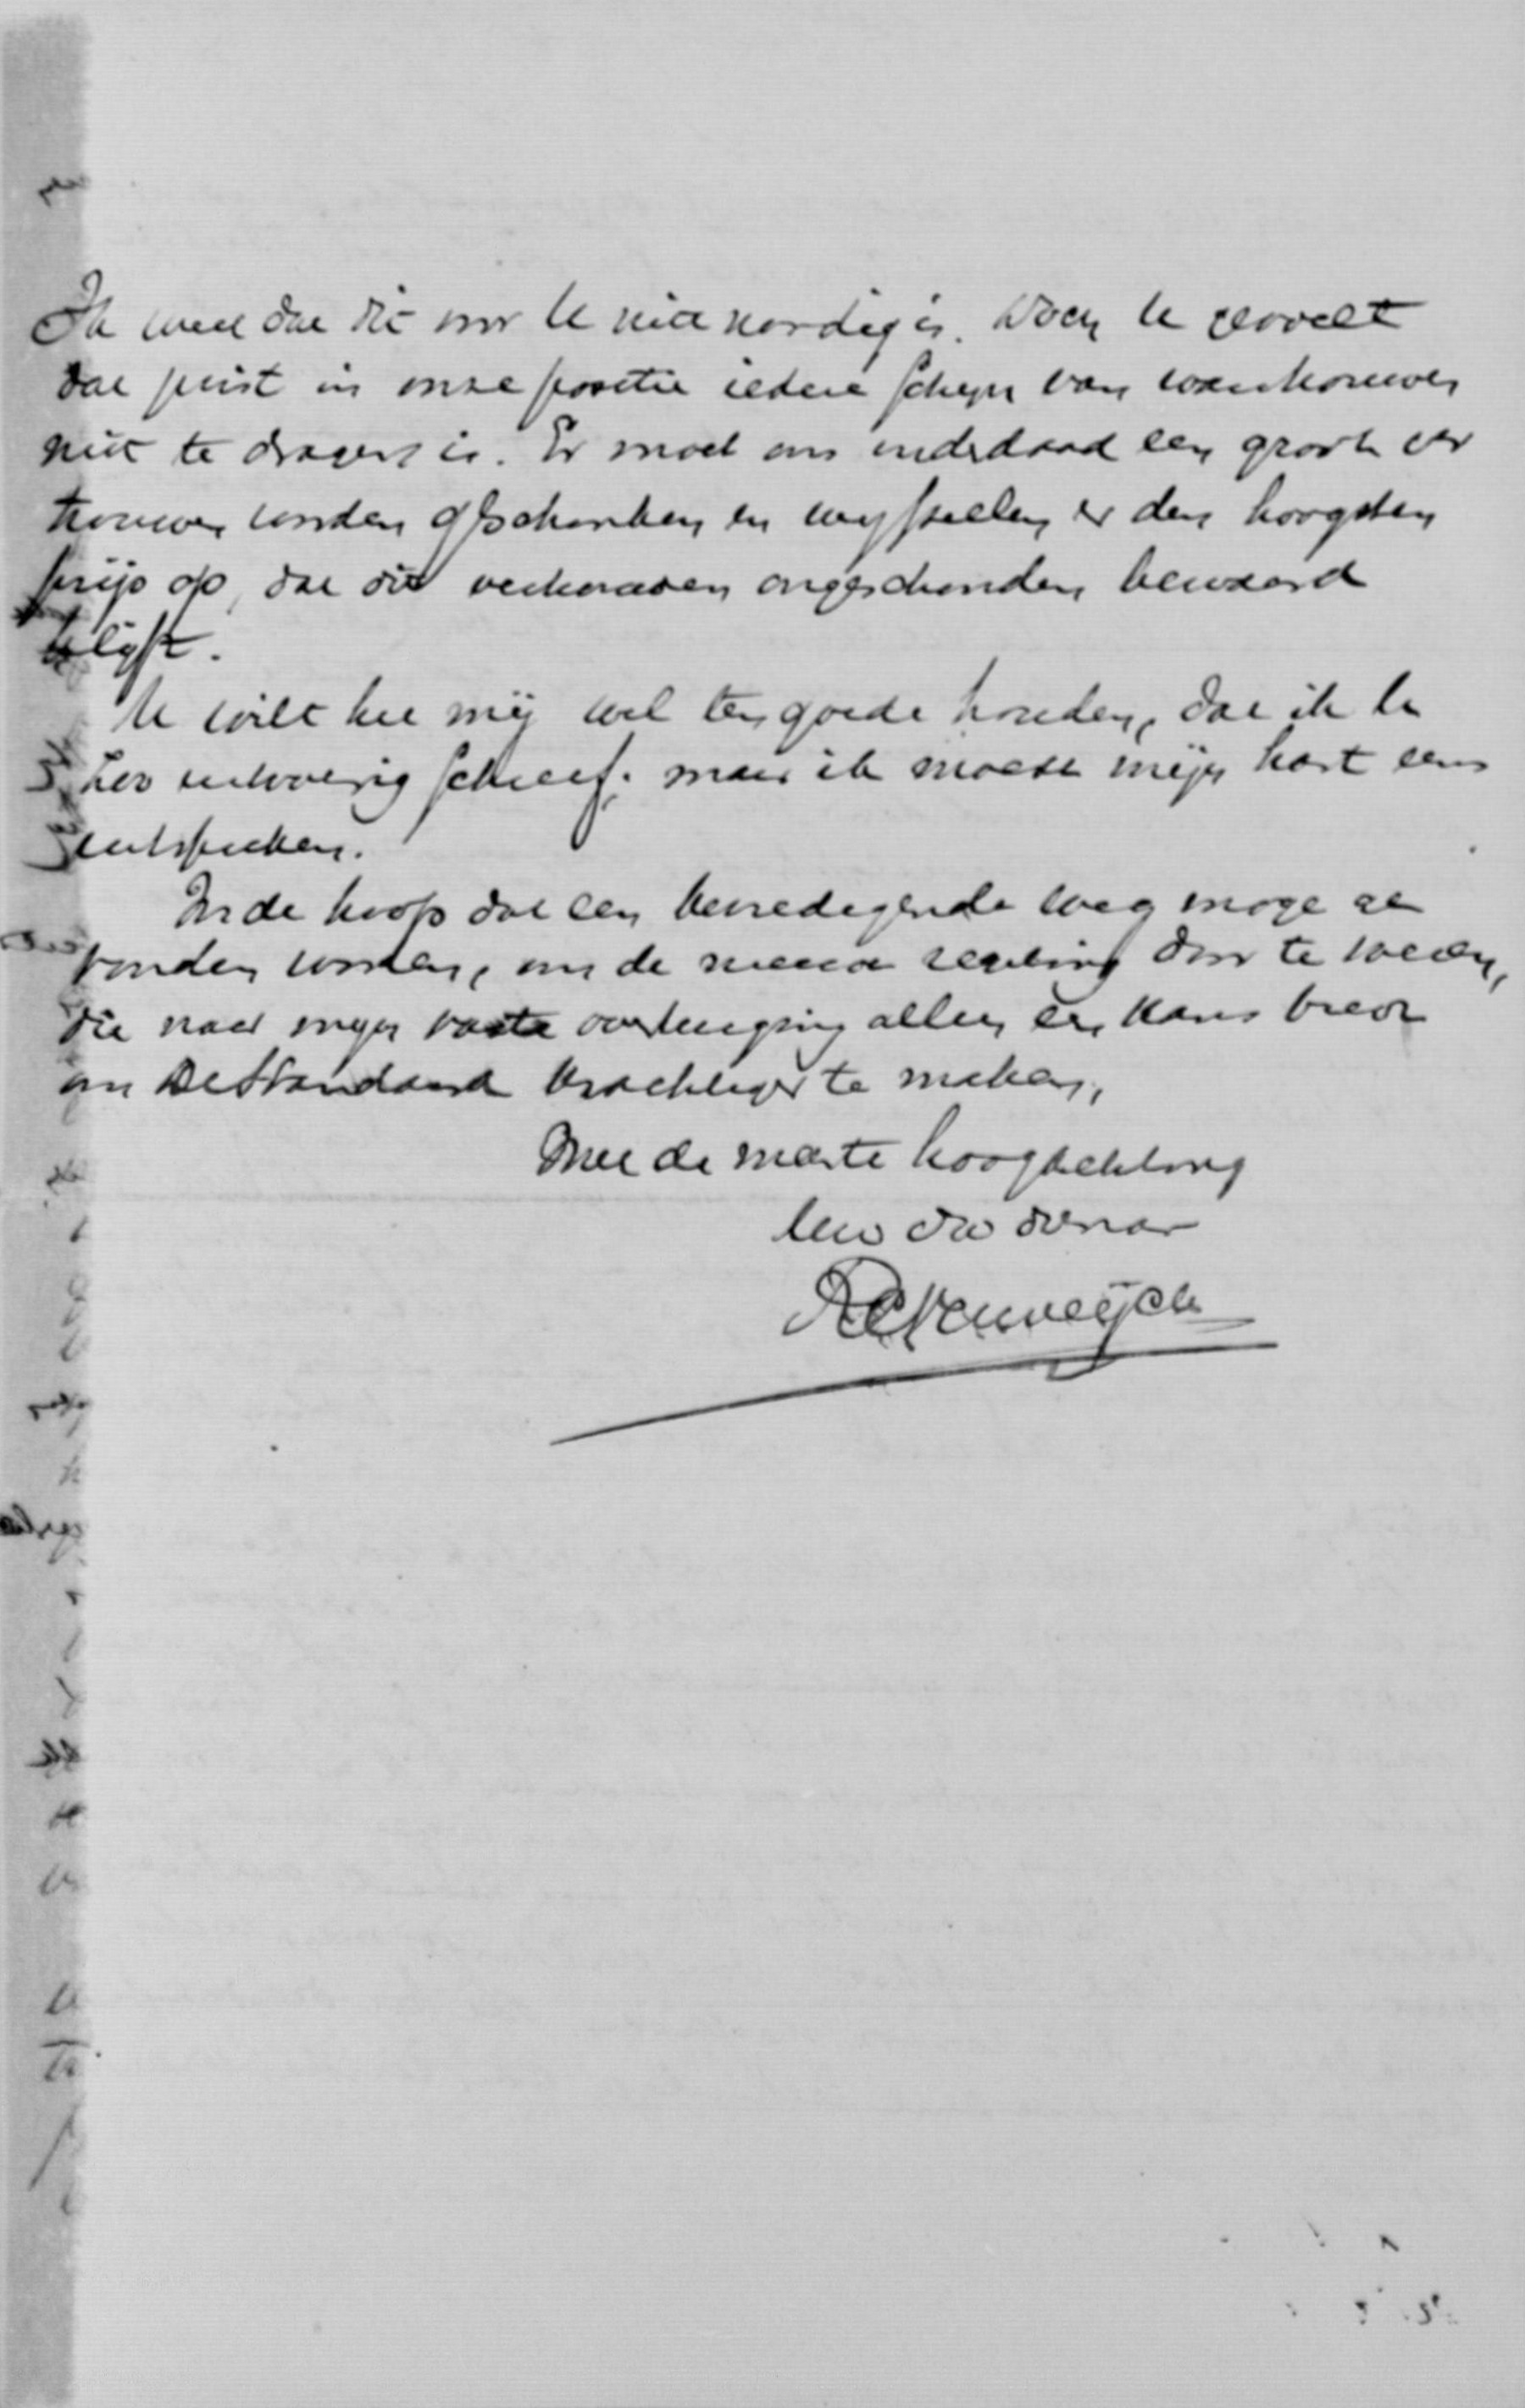 Ik weet dat dit voor U niet noodig is. Doch U gevoelt
dat juist in onze positie iedere schijn van wantrouwen
niet te dragen is. Er moet ons inderdaad een groote ver
trouwen worden geschonken en wij stellen er den hoogsten
prijs op, dat dit vertrouwen ongeschonden bewaard
blijft.
U wilt het mij wel ten goede houden, dat ik U
zoo uitvoerig schreef; maar ik moest mijn hart eens
uitspreken.
In de hoop dat een bevredigende weg moge ge
vonden worden, om de nieuwe regeling door te voeren,
die naar mijn vaste overtuiging alleen een kans biedt
om De Standaard krachtiger te maken,
Met de meeste hoogachting
Uw dw dienaar